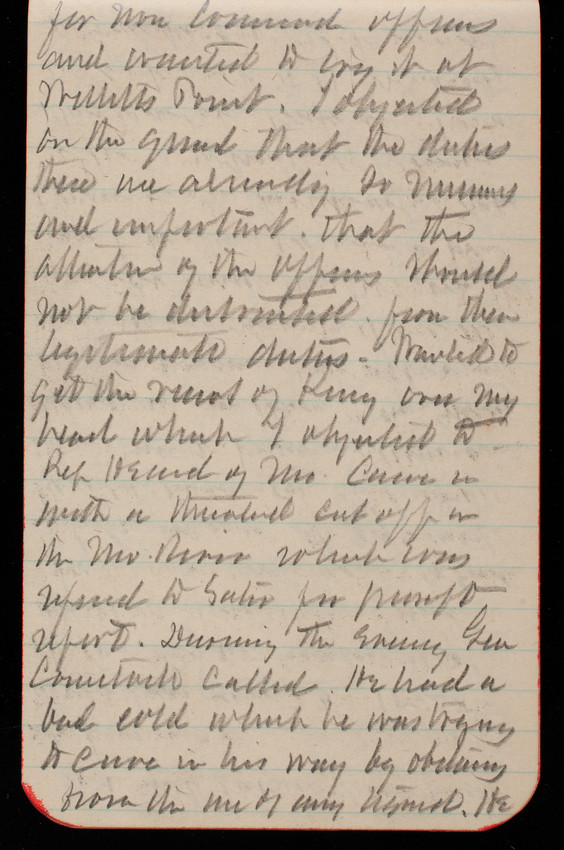 for non command officers
and wanted to try it at
Willetts Point. I objected
on the ground that the duties
there are already so numerous
and important. that the
attention of the officers should
not be distracted from their
legitimate duties - Wanted to
get the record of King over my
head which I objected to
Rep Heard of Mo. Came in
with a threatened cut off in
the Mo. River which was
referred to Suter for prompt
report. During the evening Gen
Comstock called. He had a
bad cold which he was trying
to cure in his way by obstaining
from the use of any liquid. He